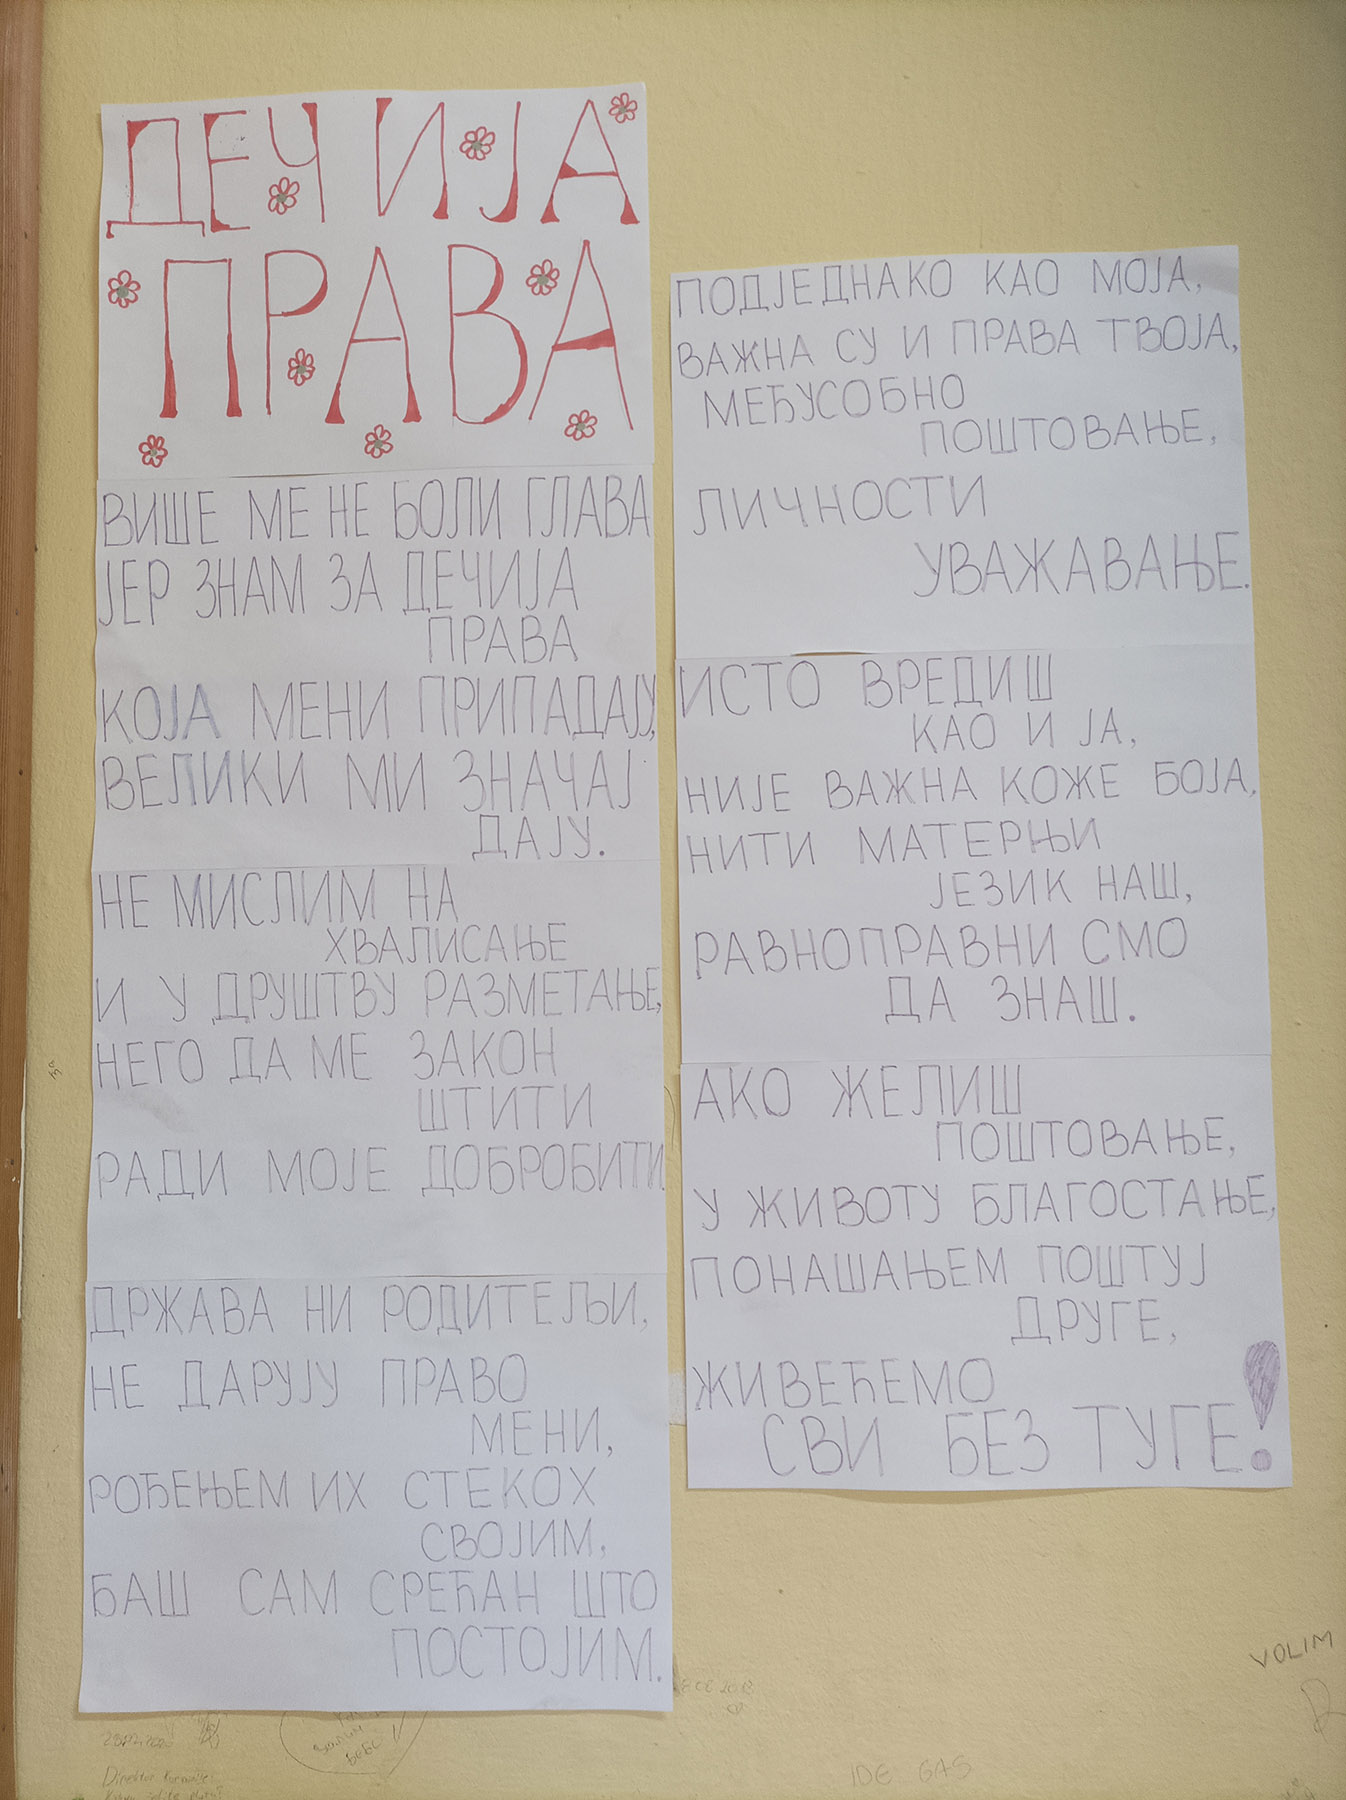 ДЕЧИЈА
ПРАВА
ВИШЕ МЕ НЕ БОЛИ ГЛАВА
ЈЕР ЗНАМ ЗА ДЕЧИЈА
ПРАВА
КОЈА МЕНИ ПРИПАДАЈУ,
ВЕЛИКИ МИ ЗНАЧАЈ
ДАЈУ.
НЕ МИСЛИМ НА
ХВАЛИСАЊЕ
И У ДРУШТВУ РАЗМЕТАЊЕ,
НЕГО ДА МЕ ЗАКОН
ШТИТИ
РАДИ МОЈЕ ДОБРОБИТИ.
ДРЖАВА НИ РОДИТЕЉИ,
НЕ ДАРУЈУ ПРАВО
МЕНИ,
РОЂЕЊЕМ ИХ СТЕКОХ
СВОЈИМ,
БАШ САМ СРЕЋАН ШТО
ПОСТОЈИМ.
ПОДЈЕДНАКО КАО МОЈА,
ВАЖНА СУ И ПРАВА ТВОЈА,
МЕЂУСОБНО
ПОШТОВАЊЕ,
ЛИЧНОСТИ
УВАЖАВАЊЕ.
ИСТО ВРЕДИШ
КАО И ЈА,
НИЈЕ ВАЖНА КОЖЕ БОЈА,
НИТИ МАТЕРЊИ
ЈЕЗИК НАШ,
РАВНОПРАВНИ СМО
ДА ЗНАШ.
АКО ЖЕЛИШ
ПОШТОВАЊЕ,
У ЖИВОТУ БЛАГОСТАЊЕ,
ПОНАШАЊЕМ ПОШТУЈ
ДРУГЕ,
ЖИВЕЋЕМО
СВИ БЕЗ ТУГЕ!
VOLIM
IDE GAS